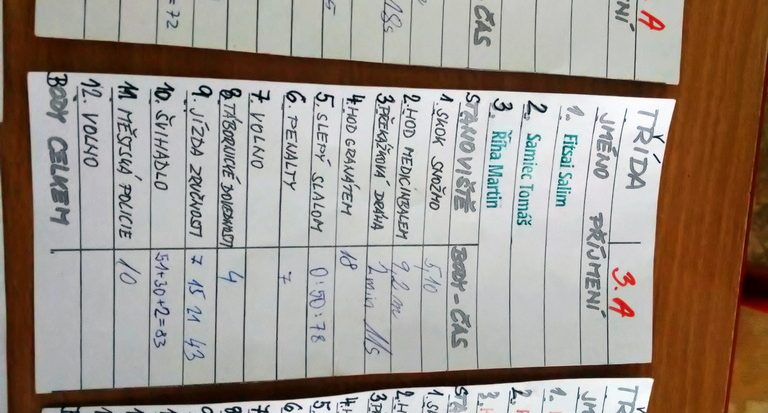 TŘÍDA 3.A
JMÉNO PŘÍJMENÍ
1. Fitsai Salim
2. Samiec Tomáš
3. Říha Martin
STANOVIŠTĚ BODY-ČAS
1. SKOK SNOŽMO 5,10
2. HOD MEDICINBALEM 9,2 m
3. PŘEKÁŽKOVÁ DRÁHA 2 min 11s
4. HOD GRANÁTEM 18
5. SLEPÝ SLALOM 0:50:78
6. PENALTY 7
7. VOLNO
8. TÁBORNICKÉ DOVEDNOSTI 4
9. JÍZDA ZRUČNOSTI 7 15 21 43
10. ŠVIHADLO 51+30+2=83
11. MĚSTSKÁ POLICIE 10
12. VOLNO
BODY CELKEM